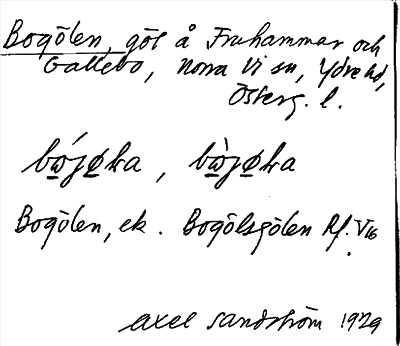 Bogölen, göl å Fruhammar och
Gallebo, Norra Vi sn, Ydre hd,
Österg. l.
Bogölen, ek. Bogölsgölen Rf. V 16
Axel Sandström 1929